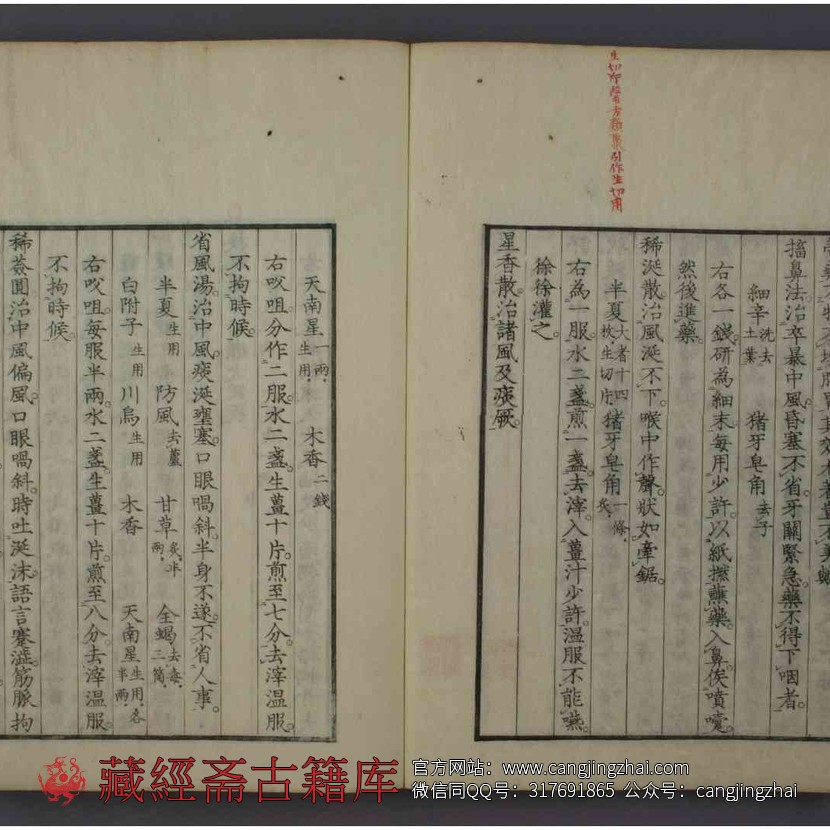 生切 醫方類聚引作生切用
搐鼻法。治卒暴中風。昏塞不省。牙關緊急。藥不得下咽者。
細辛洗去土葉 猪牙皂角去子
右各一錢。研為細末。每用少許。以紙撚蘸藥。入鼻俟噴嚏。
然後進藥。
稀涎散。治風涎不下。喉中作聲。狀如牽鋸。
半夏大者十四枚。生切片。 猪牙皂角一條。炙。
右為一服。水二盞。煎一盞。去滓。入薑汁少許。温服不能嚥。
徐徐灌之。
星香散。治諸風及痰厥。
天南星一兩。生用。 木香二錢
右㕮咀。分作二服。水二盞。生薑十片。煎至七分。去滓温服。
不拘時候。
省風湯。治中風。痰涎壅塞。口眼喎斜。半身不遂。不省人事。
半夏生用 防風去蘆 甘草炙。半兩。 全蝎去毒。三箇。
白附子生用 川烏生用 木香 天南星生用。各半兩。
右㕮咀。每服半兩。水二盞。生薑十片。煎至八分。去滓温服。
不拘時候。
稀薟圓。治中風偏風。口眼喎斜。時吐涎沫。語言蹇澁。筋脈拘
藏經斋古籍库
官方网站：www.cangjingzhai.com
微信同QQ号：317691865 公众号：cangjingzhai